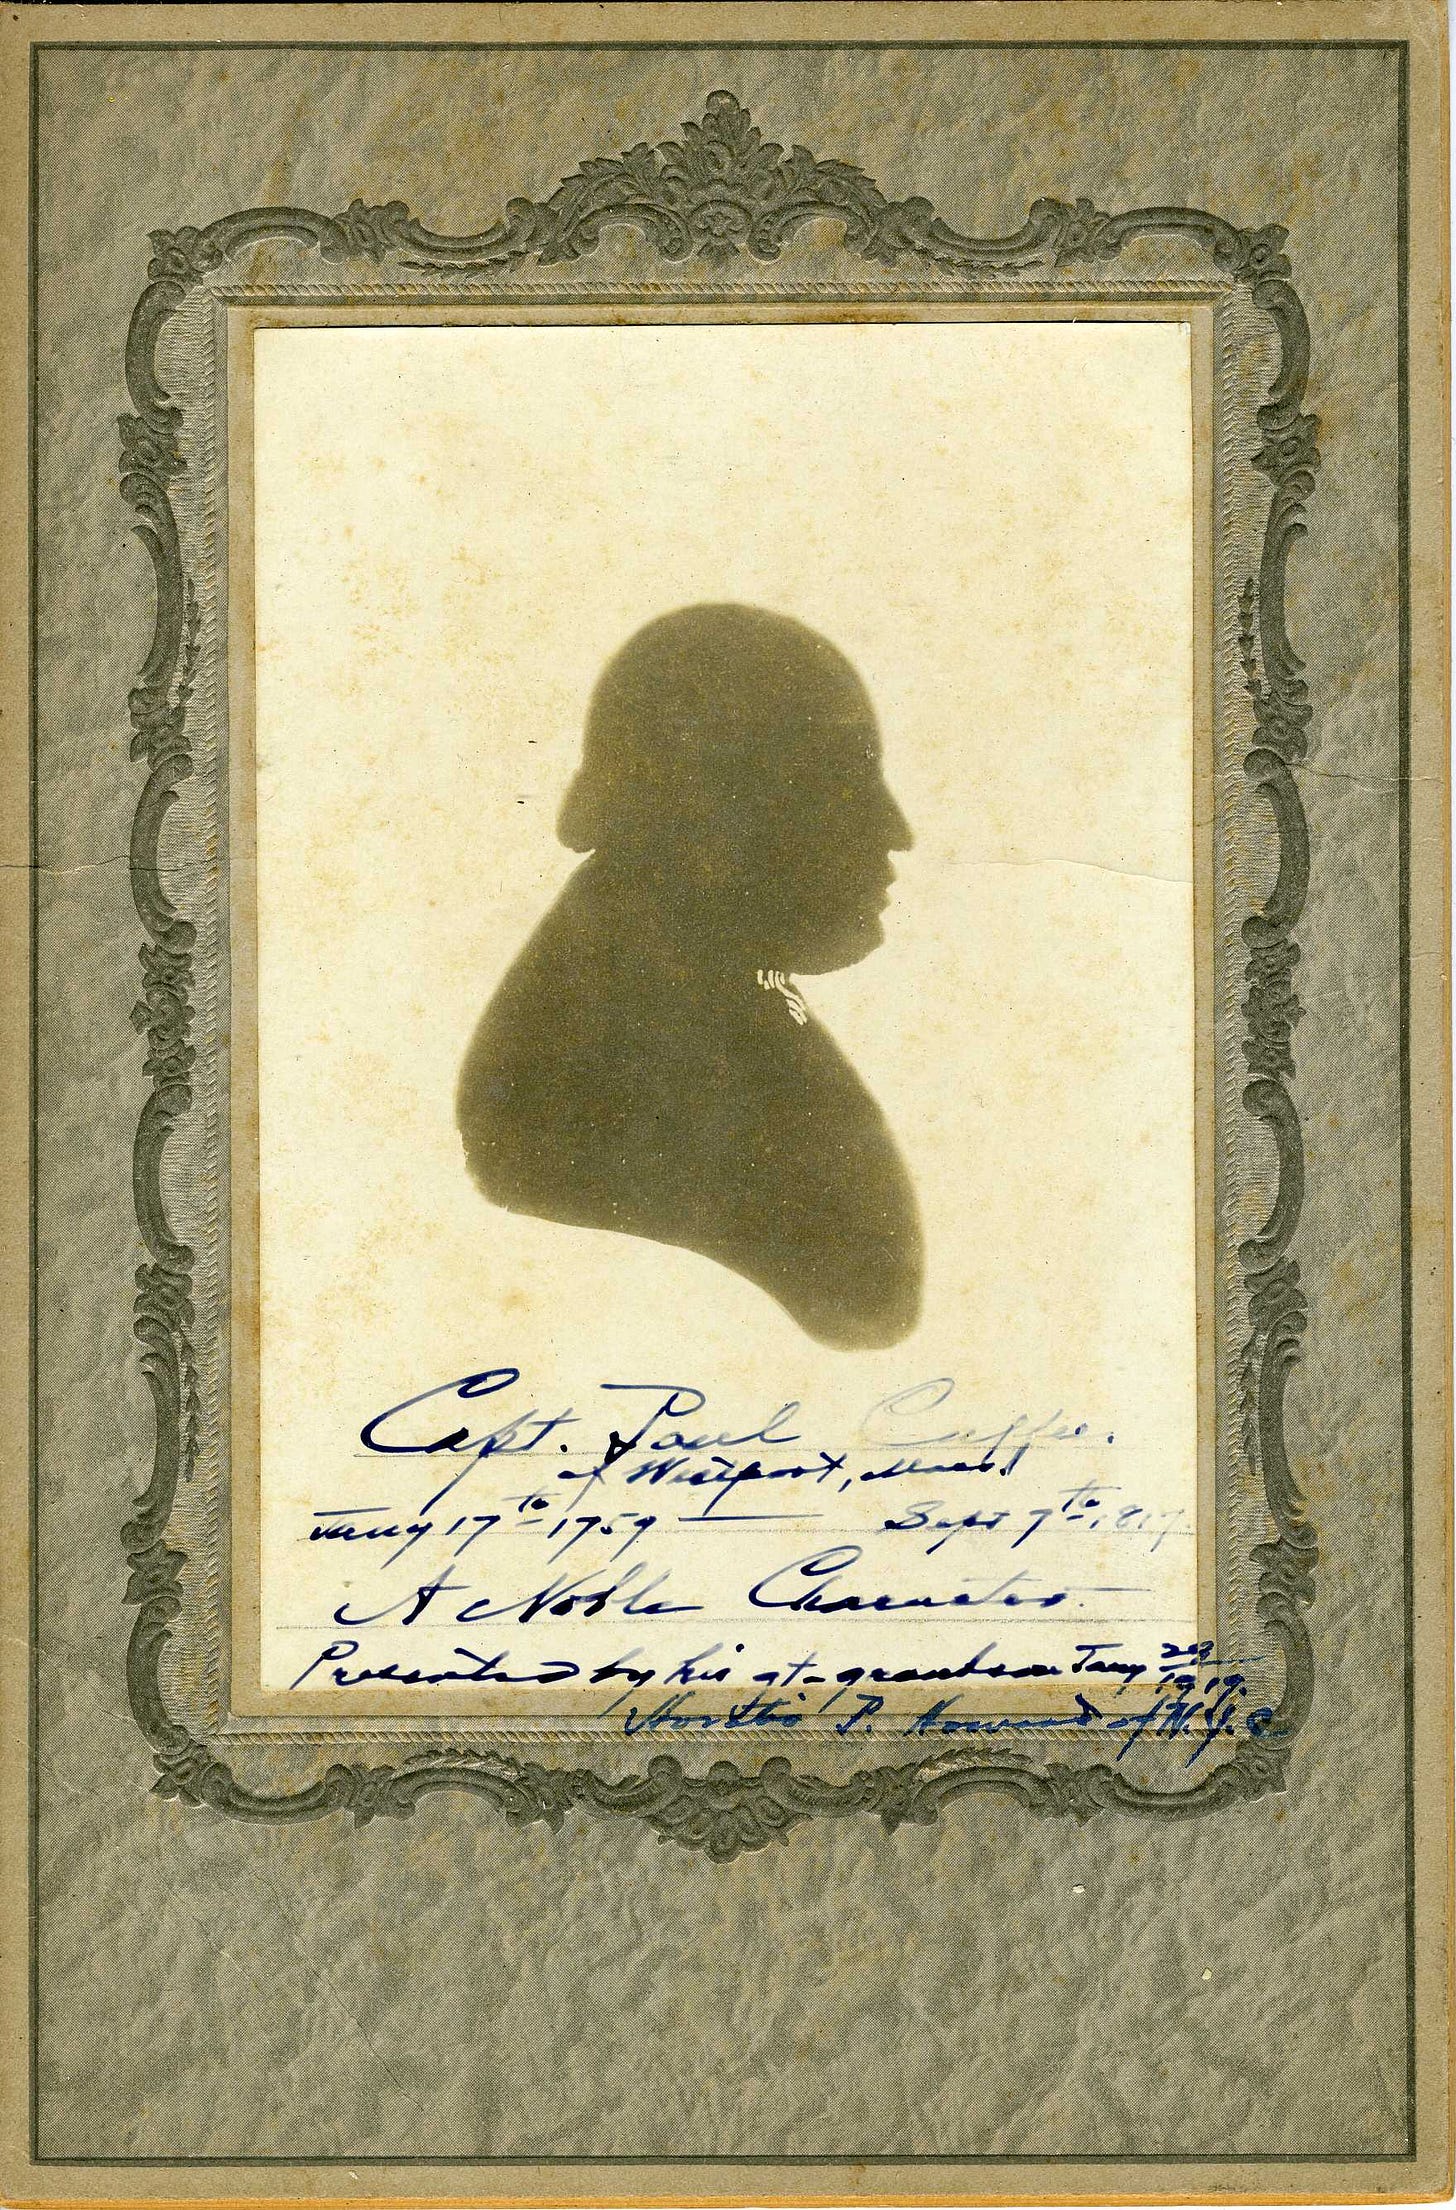 Capt. Paul Cuffee.
of Westport, Mass.
Jany 17th 1759 — Sept 7th 1817.
A Noble Character.
Presented by his gt-grandson Jany 1919.
Horatio P. Howard of N.Y.C.